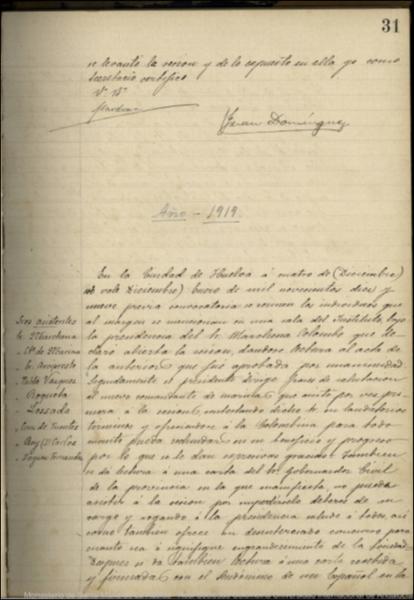 31
se levantó la sesion y de lo expuesto en ella yo como
Secretario certifico
Vº Bº
Juan Dominguez
Año - 1919.
En la Ciudad de Huelva á cuatro de (Diciembre)
vale Diciembre) Enero de mil novecientos diez y
nueve previa convocatoria se reunen los individuos que
al margen se mencionan en una sala del Instituto, bajo
la presidencia del Sr. Marchena Colombo que
claró abierta la sesion, dandose lectura al acta de
la anterior que fué aprobada por unanimidad
Seguidamente el presidente dirige frases de salutacion
al nuevo comandante de marina que asiste por vez pri-
mera á la sesion, contestando dicho Sr. en
terminos y ofreciendose á la Colombina para todo
cuanto pueda redundar en su beneficio y progreso
por lo que se le dan expresivas gracias. Tambien
se da lectura á una carta del Sr. Gobernador Civil
de la provincia en la que manifiesta, no puede
asistir á la sesion por impedirselo deberes de su
cargo y rogando á la presidencia salude á todos, asi
como tambien ofrece su desinteresado concurso para
cuanto sea ó signifique engrandecimiento de la Sociedad
Despues se da tambien lectura á una carta recibida
y firmada con el seudonimo de un Español en la
Sres asistentes
Sr. Marchena
Cte de Marina
Vazquez
Roqueta
Losada